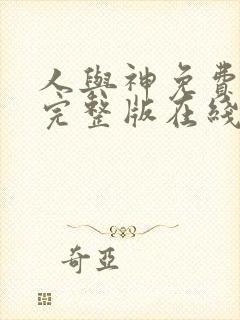 人與神免費
完整版在綫
奇亞